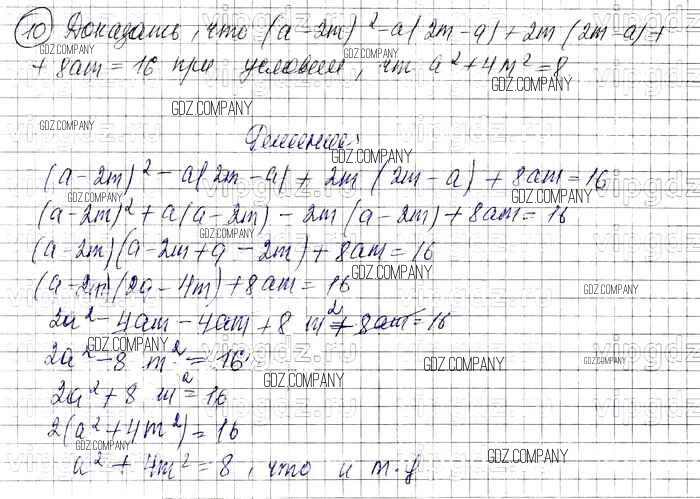 10) Доказать, что (a - 2m)² - a(2m - a) + 2m(2m - a) +
+ 8am = 16 при условии, что a² + 4m² = 8
Решение:
(a - 2m)² - a(2m - a) + 2m(2m - a) + 8am = 16
(a - 2m)² + a(a - 2m) - 2m(a - 2m) + 8am = 16
(a - 2m)(a - 2m + a - 2m) + 8am = 16
(a - 2m)(2a - 4m) + 8am = 16
2a² - 4am - 4am + 8m² + 8am = 16
2a² - 8 m² = 16
2a² + 8 m² = 16
2(a² + 4m²) = 16
a² + 4m² = 8, что и т.д.
GDZ.COMPANY
vipgdz.ru